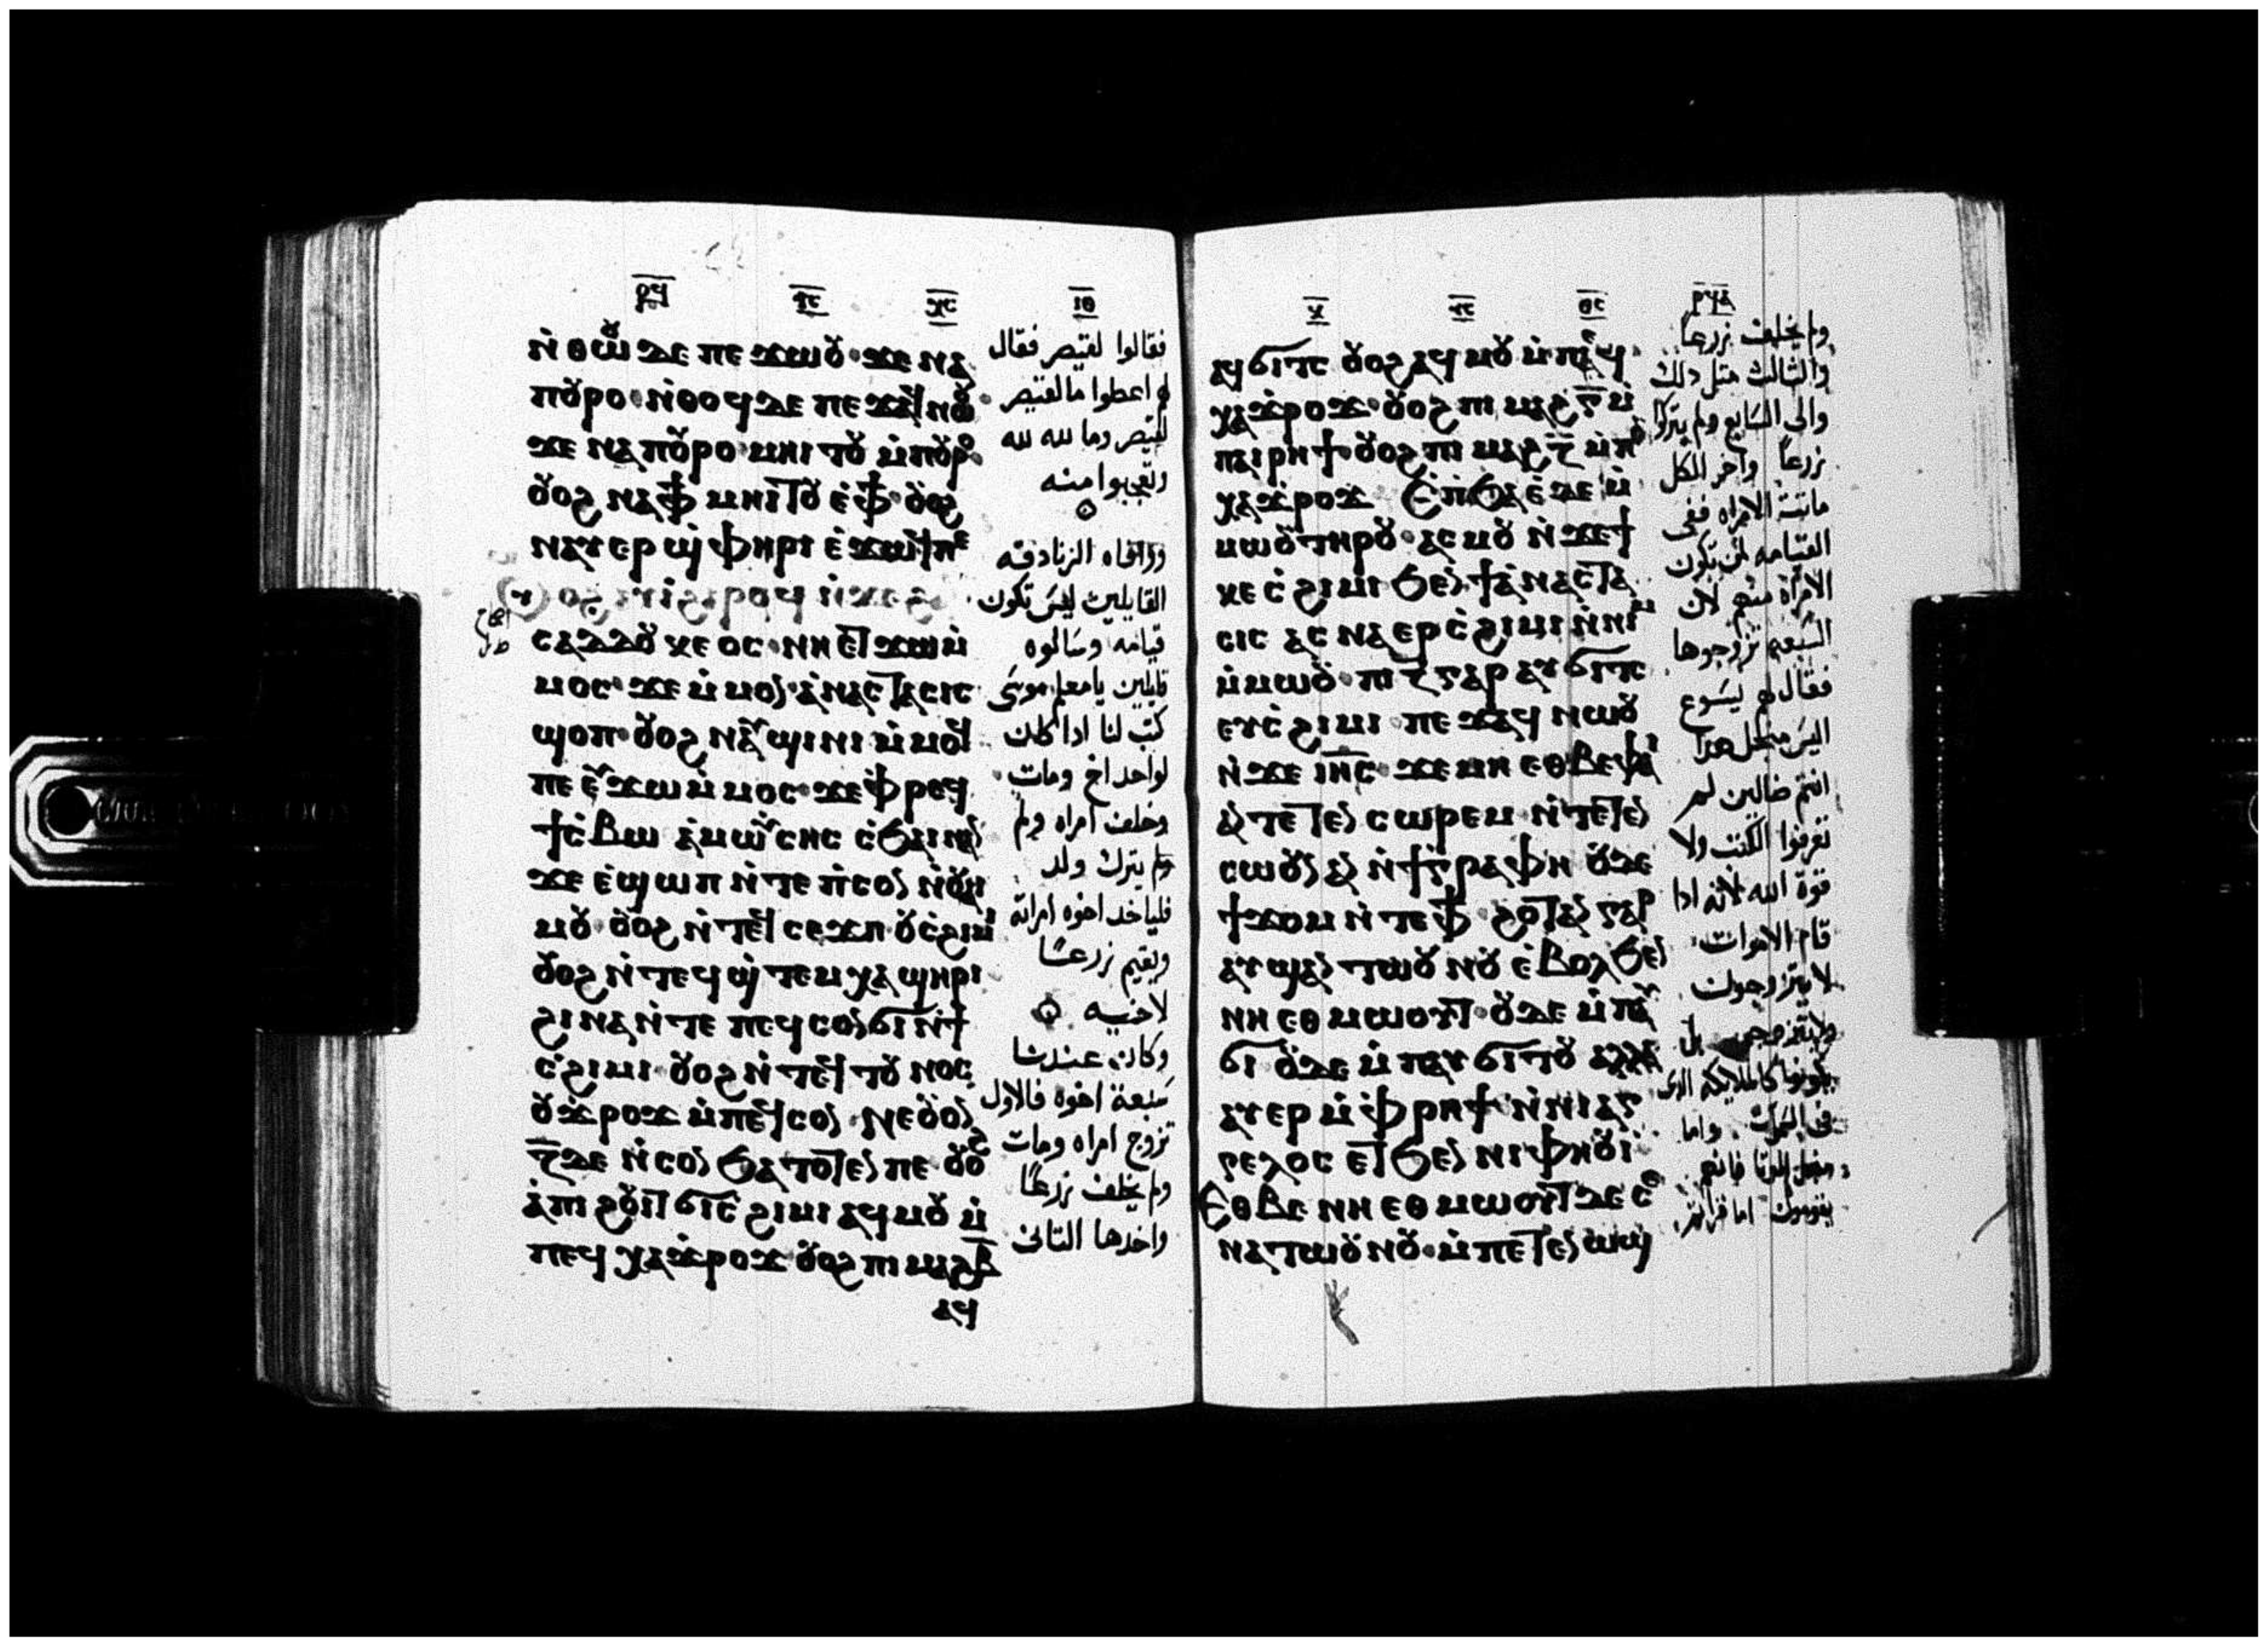 ⲣϥ
ⲓⲑ
ⲛ̀ⲑⲱⲟⲩ ⲇⲉ ⲡⲉϫⲱⲟⲩ ϫⲉ ⲛⲁ
ⲡⲟⲩⲣⲟ ⲛ̀ⲑⲟϥ ⲇⲉ ⲡⲉϫⲁϥ ⲛⲱⲟⲩ
ϫⲉ ⲛⲁ ⲡⲟⲩⲣⲟ ⲙⲏⲓⲧⲟⲩ ⲙ̀ⲡⲟⲩⲣⲟ
ⲟⲩⲟϩ ⲛⲁ ⲫϯ ⲙⲏⲓⲧⲟⲩ ⲉ̀ⲫϯ ⲟⲩⲟϩ
ⲛⲁⲩⲉⲣ ϣ̀ⲫⲏⲣⲓ ⲉ̀ϫⲱϥ ⲡⲉ
ⲥⲁⲇⲇⲟⲩⲕⲉⲟⲥ ⲛⲏ ⲉⲧϫⲱ ⲙ̀
ⲙⲟⲥ ϫⲉ ⲙ̀ⲙⲟⲛ ⲁ̀ⲛⲁⲥⲧⲁⲥⲓⲥ
ϣⲟⲡ ⲟⲩⲟϩ ⲛⲁⲩϣⲓⲛⲓ ⲙ̀ⲙⲟϥ
ⲡⲉ ⲉⲩϫⲱ ⲙ̀ⲙⲟⲥ ϫⲉ ⲫ̀ⲣⲉϥ
ϯⲥ̀ⲃⲱ ⲁ̀ⲙⲱⲩⲥⲏⲥ ⲥ̀ϧⲁⲓ ⲛⲁⲛ
ϫⲉ ⲉ̀ϣⲱⲡ ⲛ̀ⲧⲉ ⲡ̀ⲥⲟⲛ ⲛ̀ⲟⲩⲁⲓ
ⲙⲟⲩ ⲟⲩⲟϩ ⲛ̀ⲧⲉϥ ⲥⲉϫⲡ ⲟⲩⲥ̀ϩⲓⲙⲓ
ⲟⲩⲟϩ ⲛ̀ⲧⲉϥϣ̀ⲧⲉⲙⲭⲁ ϣⲏⲣⲓ
ϩⲓⲛⲁ ⲛ̀ⲧⲉ ⲡⲉϥⲥⲟⲛ ϭⲓ ⲛ̀ϯ
ⲥ̀ϩⲓⲙⲓ ⲟⲩⲟϩ ⲛ̀ⲧⲉϥ ⲧⲟⲩⲛⲟⲥ
ⲟⲩϫ̀ⲣⲟϫ ⲙ̀ⲡⲉϥⲥⲟⲛ ⲛⲉ ⲟⲩⲟⲛ
ⲍ̅ ⲇⲉ ⲛ̀ⲥⲟⲛ ϧⲁⲧⲟⲧⲉⲛ ⲡⲉ ⲟⲩⲟϩ
ⲁ̀ ⲡⲓϩⲟⲩⲓⲧ ϭⲓ ⲥ̀ϩⲓⲙⲓ ⲁϥⲙⲟⲩ ⲙ̀
ⲡⲉϥⲭⲁ ϫ̀ⲣⲟϫ ⲟⲩⲟϩ ⲡⲓⲙⲁϩ ⲃ̅
ⲁϥ
فقالوا لقيصر فقال
لهم اعطوا ما لقيصر
لقيصر وما لله لله
وتعجبوا منه
ووافاه الزنادقه
القايلين ليس تكون
قيامه وسالوه
قايلين يا معلم موسى
كتب لنا اذا كان
لواحد اخ ومات
وخلف امراه ولم
ولم يترك ولد
فلياخد اخوه امراته
ويقيم زرعًا
لاخيه
وكان عندنا
سبعة اخوه فالاول
تزوج امراه ومات
ولم يخلف زرعًا
واخدها التانى
ⲣϥⲁ
ⲁϥϭⲓⲧⲥ ⲟⲩⲟϩ ⲁϥⲙⲟⲩ ⲙ̀ⲡⲉϥ
ⲭⲁ ϫ̀ⲣⲟϫ ⲟⲩⲟϩ ⲡⲓⲙⲁϩ ⲅ̅ ⲙ̀
ⲡⲁⲓⲣⲏϯ ⲟⲩⲟϩ ⲡⲓⲙⲁϩ ⲍ̅ ⲙ̀ⲡⲟⲩ
ⲭⲁ ϫ̀ⲣⲟϫ ⲉ̀ⲡ̀ϧⲁⲉ̀ ⲇⲉ ⲙ̀
ⲙⲱⲟⲩ ⲧⲏⲣⲟⲩ ⲁⲥⲙⲟⲩ ⲛ̀ϫⲉ ϯ
ⲕⲉ ⲥ̀ϩⲓⲙⲓ ϧⲉⲛ ϯⲁ̀ⲛⲁⲥⲧⲁ
ⲥⲓⲥ ⲁⲥⲛⲁⲉⲣⲥ̀ϩⲓⲙⲓ ⲛ̀ⲛⲓⲙ
ⲙ̀ⲙⲱⲟⲩ ⲡⲓ ⲍ̅ ⲅⲁⲣ ⲁⲩϭⲓⲧⲥ
ⲉⲩⲥ̀ϩⲓⲙⲓ ⲡⲉϫⲁϥ ⲛⲱⲟⲩ
ⲛ̀ϫⲉ ⲓⲏ̅ⲥ̅ ϫⲉ ⲙⲏ ⲉⲑⲃⲉ ⲫⲁⲓ
ⲁⲛ ⲧⲉⲧⲉⲛ ⲥⲱⲣⲉⲙ ⲛ̀ⲧⲉⲧⲉⲛ
ⲥⲱⲟⲩⲛ ⲁⲛ ⲛ̀ϯⲅⲣⲁⲫⲏ ⲟⲩⲇⲉ
ϯϫⲟⲙ ⲛ̀ⲧⲉ ⲫϯ ϩⲟⲧⲁⲛ ⲅⲁⲣ
ⲁⲩϣⲁⲛ ⲧⲱⲟⲩⲛⲟⲩ ⲉ̀ⲃⲟⲗ ϧⲉⲛ
ⲛⲏ ⲉⲑⲙⲱⲟⲩⲧ ⲟⲩⲇⲉ ⲙ̀ⲡⲁⲩ
ϭⲓ ⲟⲩⲇⲉ ⲙ̀ⲡⲁⲩϭⲓⲧⲟⲩ ⲁⲗⲗⲁ
ⲁⲩⲉⲣ ⲙ̀ⲫ̀ⲣⲏϯ ⲛ̀ⲛⲓⲁⲅ
ⲅⲉⲗⲟⲥ ⲉⲧϧⲉⲛ ⲛⲓⲫⲏⲟⲩⲓ̀
ⲉⲑⲃⲉ ⲛⲏ ⲉⲑⲙⲱⲟⲩⲧ ⲇⲉ ⲥⲉ
ⲛⲁⲧⲱⲟⲩⲛⲟⲩ ⲙ̀ⲡⲉⲧⲉⲛ ⲱϣ
ولم يخلف زرعاً
والثالث مثل ذلك
والى السابع ولم يتركوا
زرعاً واخر الكل
ماتت الامراه ففى
القيامه لمن تكون
الامراة منهم لان
السبعه تزوجوها
فقال لهم يسوع
اليس من اجل هدا
انتم ضالين لم
تعرفوا الكتب ولا
قوة الله لانه اذا
قام الاموات
لا يتزوجون
ولا يتزوجن بل
يكونوا كالملايكه الدى
فى السموات واما
من اجل الموتا فانهم
يقومون اما قراتم